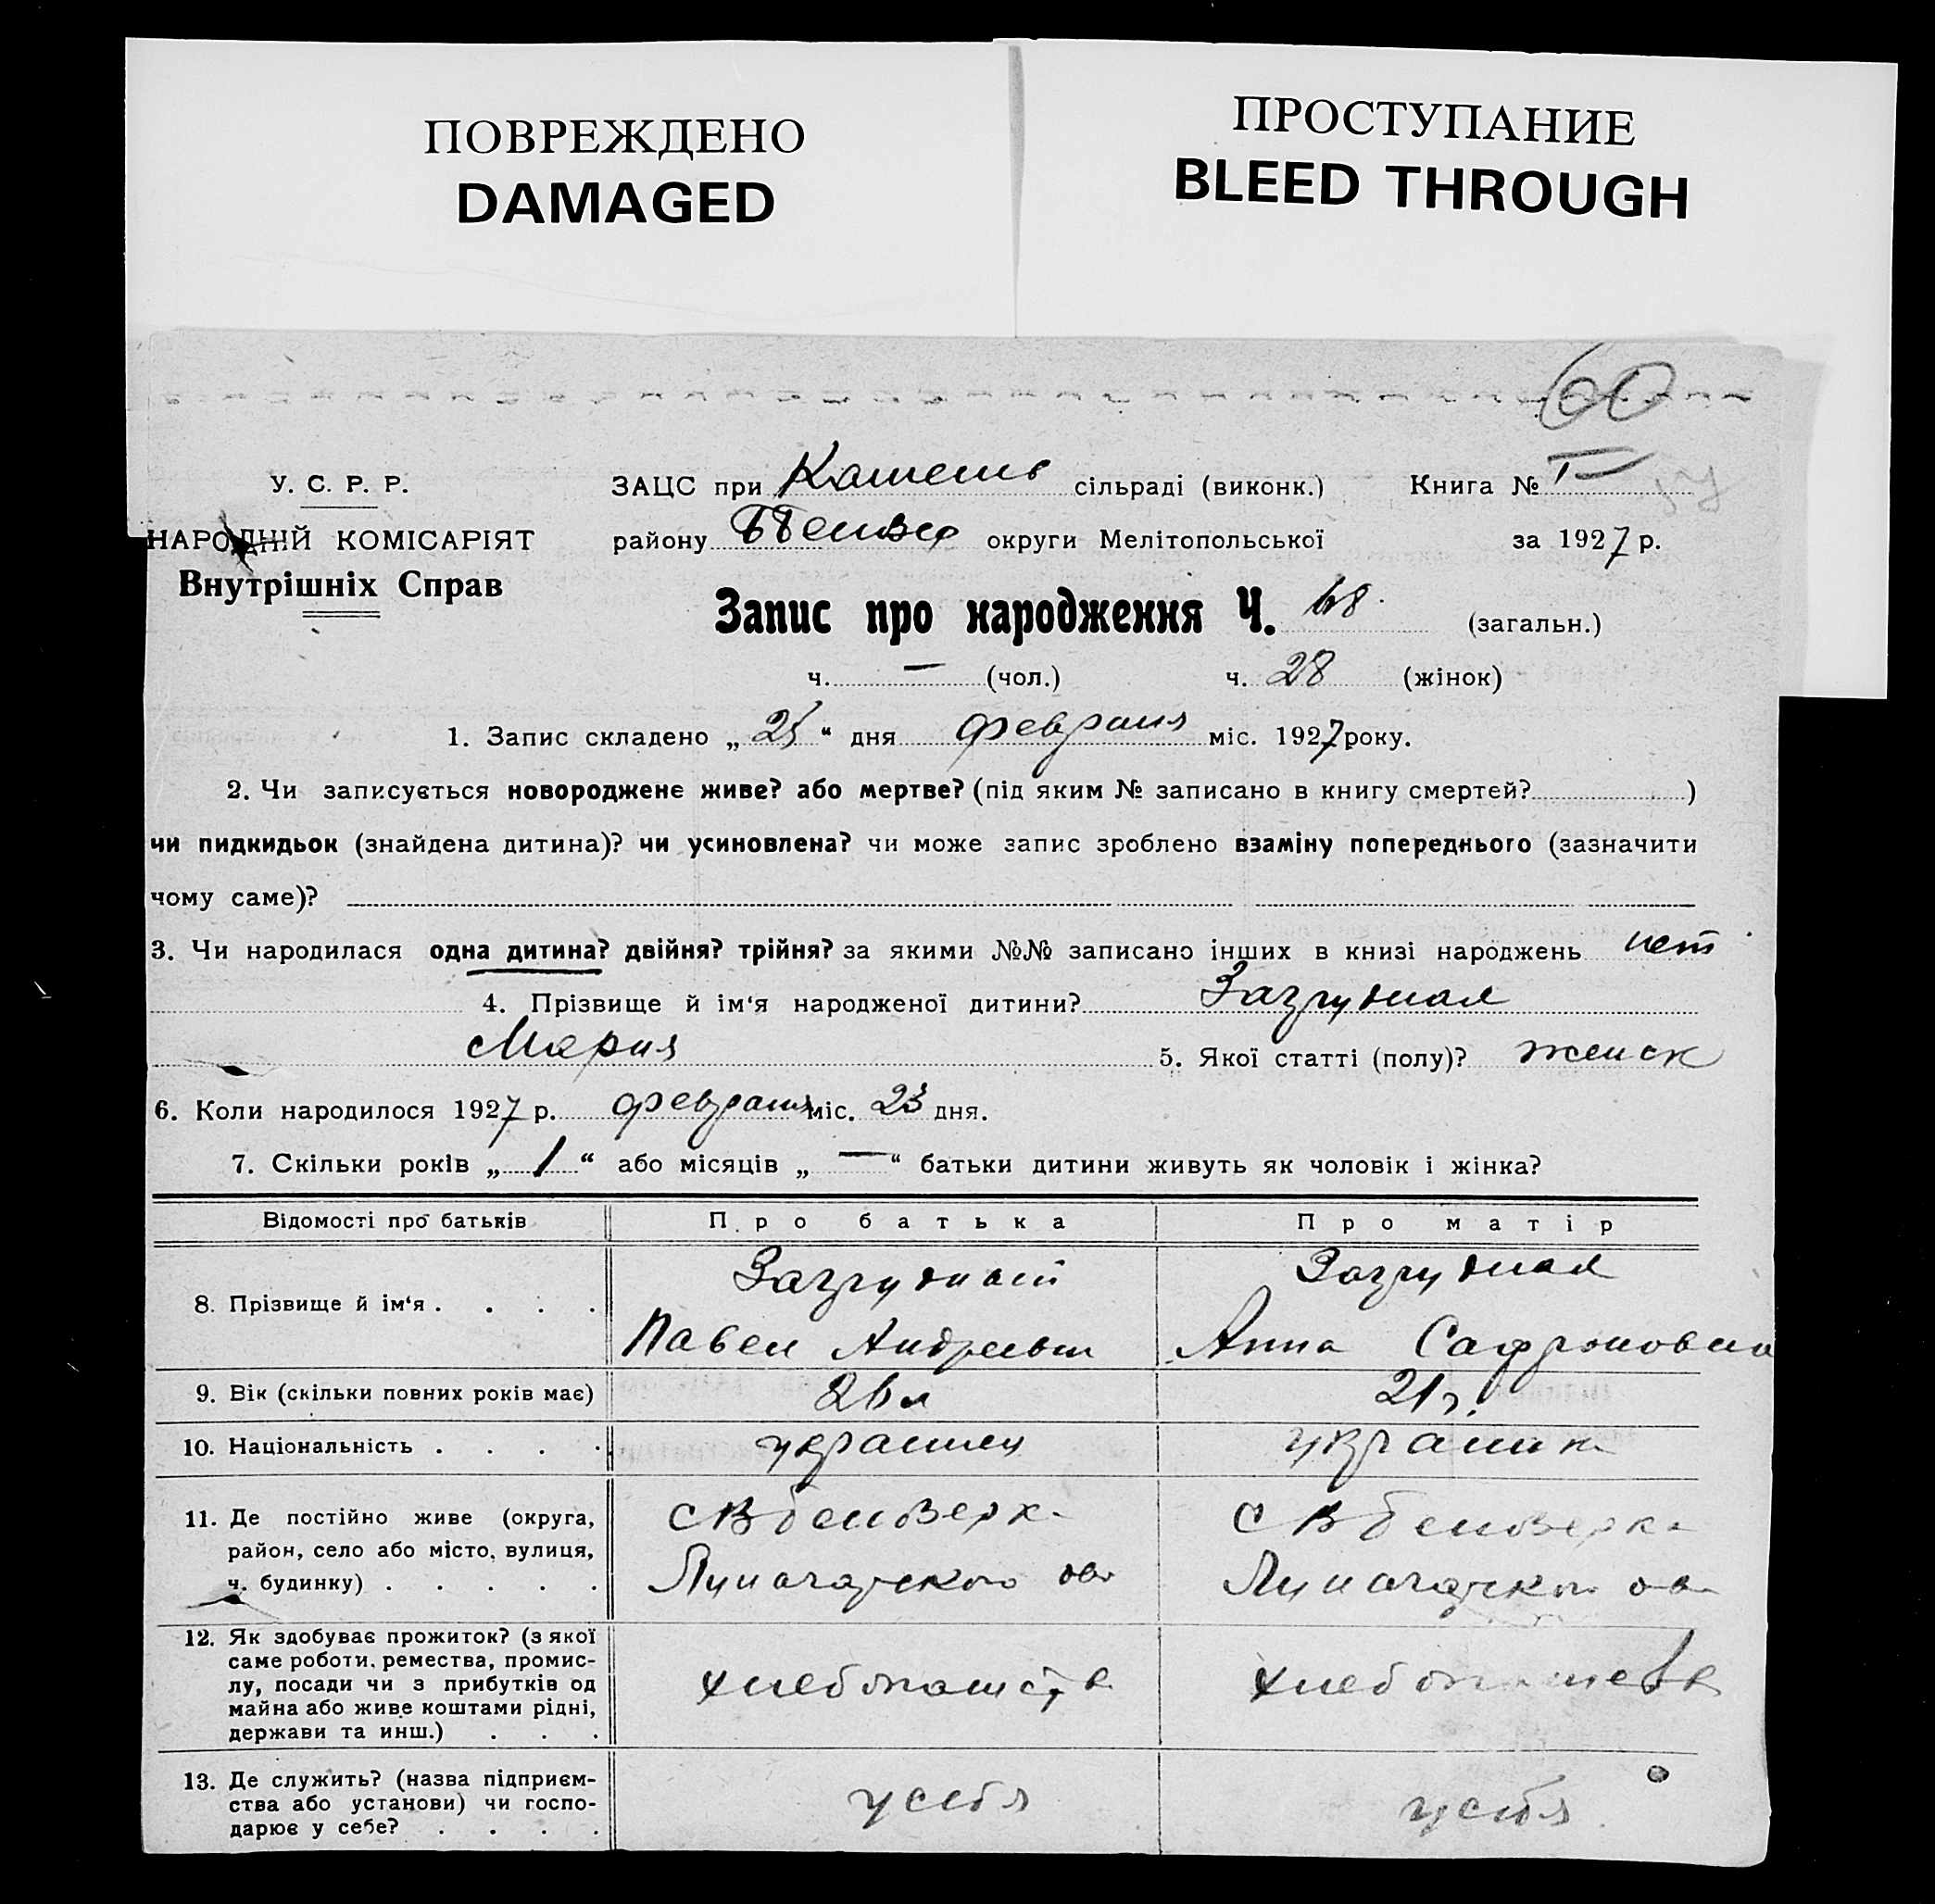 ПОВРЕЖДЕНО
DAMAGED
ПРОСТУПАНИЕ
BLEED THROUGH
60
У. С. Р. Р.
НАРОДНІЙ КОМІСАРІЯТ
Внутрішніх Справ
ЗАЦС при сільраді (виконк.) Книга №
району округи Мелітопольської за 1927 р.
Запис про народження Ч. 68. (загальн.)
ч. — (чол.) ч. 28 (жінок)
1. Запис складено „25“ дня февраля міс. 1927 року.
2. Чи записується новороджене живе? або мертве? (під яким № записано в книгу смертей? )
чи пидкидьок (знайдена дитина)? чи усиновлена? чи може запис зроблено взаміну попереднього (зазначити
чому саме)?
3. Чи народилася одна дитина? двійня? трійня? за якими №№ записано інших в книзі народжень нет
4. Прізвище й ім‘я народженої дитини? Зазгудная
Мария 5. Якої статті (полу)? женск
6. Коли народилося 1927 р. февраля міс. 23 дня.
7. Скільки років „1“ або місяців „—“ батьки дитини живуть як чоловік і жінка?
Відомості про батьків Про батька Про матір
8. Прізвище й ім‘я . . . . Зазгудный Зазгудная
Павел Андреевич Анна Сафроновна
9. Вік (скільки повних років має) 26 л 21 г.
10. Національність . . . . украинец украинка
11. Де постійно живе (округа,
район, село або місто, вулиця,
ч. будинку) . . . . .
12. Як здобуває прожиток? (з якої
саме роботи, ремества, промис-
лу, посади чи з прибутків од
майна або живе коштами рідні,
держави та инш.) . . .
хлебопашств хлебопашеств
13. Де служить? (назва підприєм-
ства або установи) чи госпо-
дарює у себе? . . . .
у себя у себя